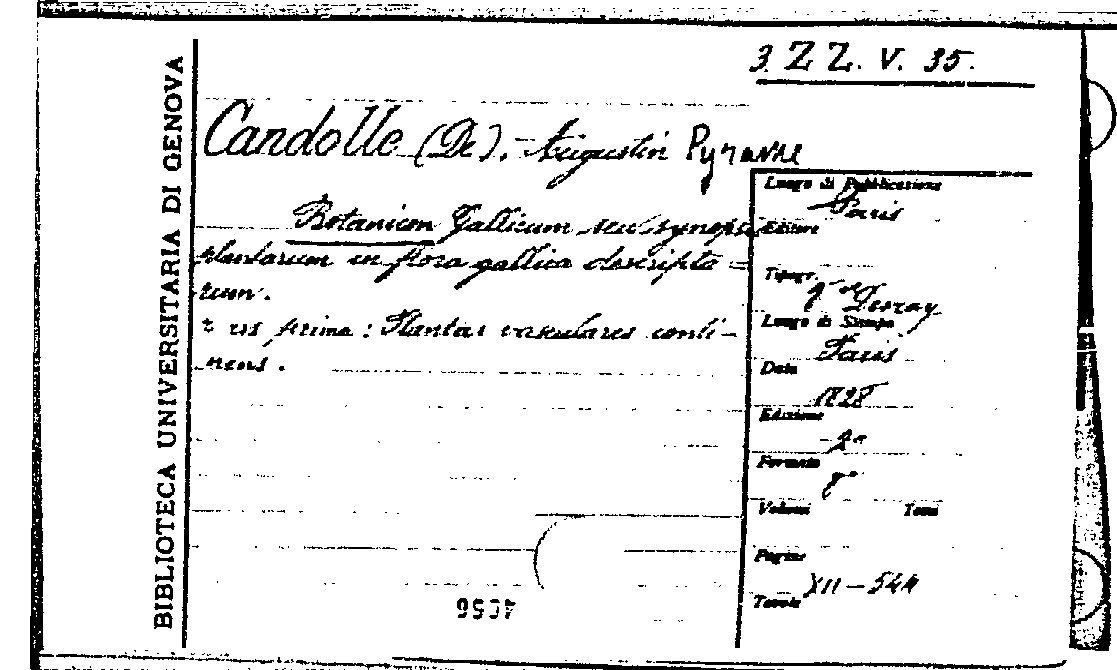 BIBLIOTECA UNIVERSITARIA DI GENOVA
3. Z Z. V. 35.
Candolle (De), Augustin Pyrame
Botanicon Gallicum seu synopsis
plantarum in flora gallica descripta=
rum.
Pars prima: Plantas vasculares conti-
nens.
Luogo di Pubblicazione
Paris
Editore
Tipogr.
Desray
Luogo di Stampa
Paris
Data
1828
Edizione
2ª
Formato
8°
Volumi Tomi
Pagine
XII-544
Tavole